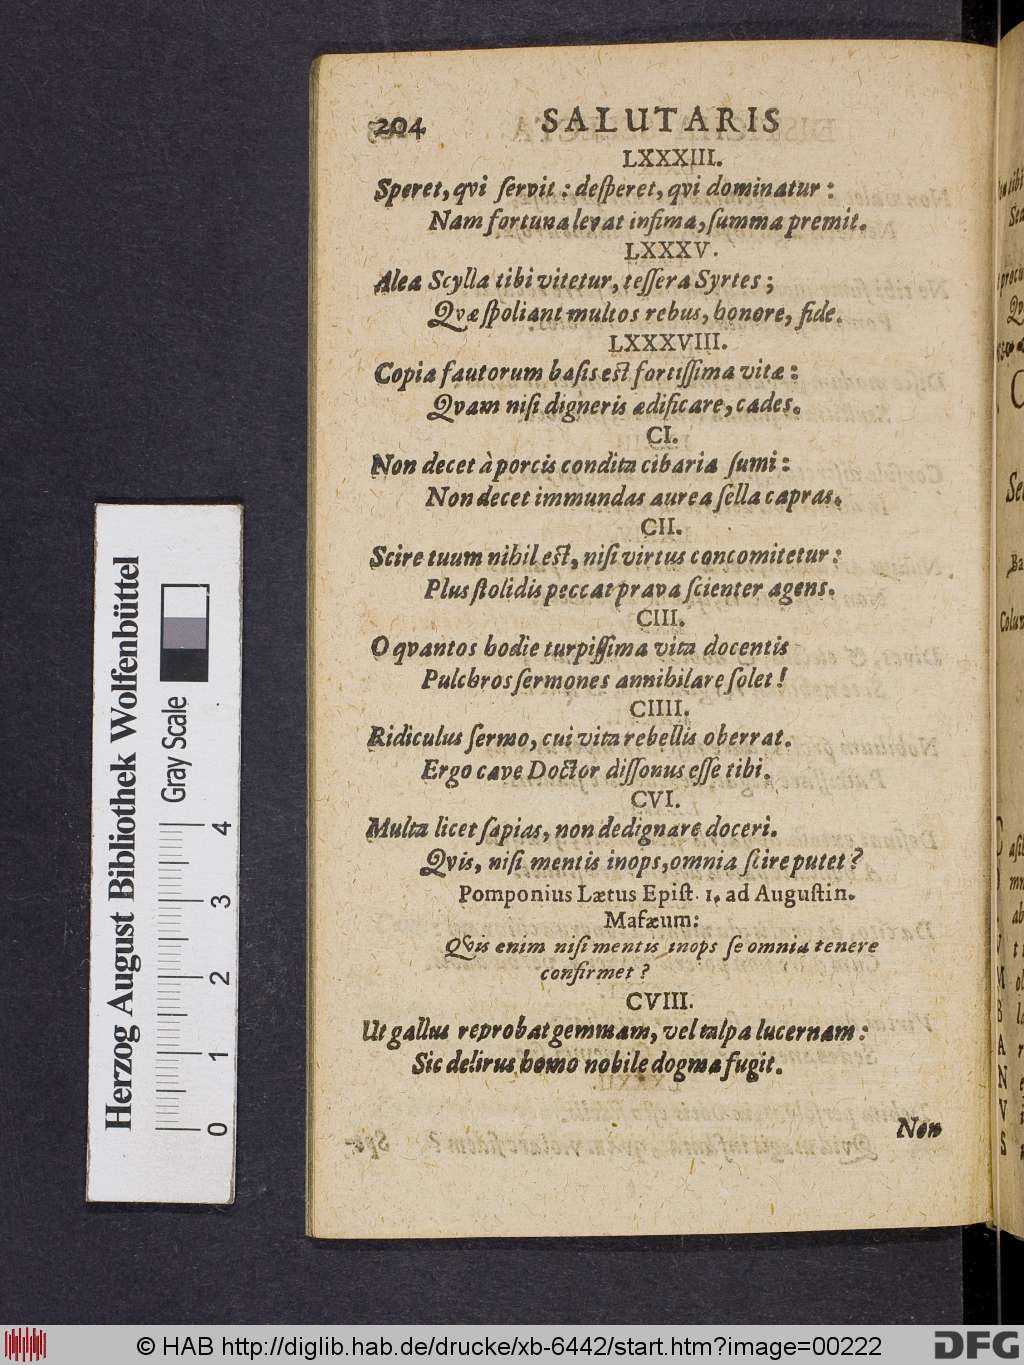 204 SALUTARIS
LXXXIII.
Speret, qvi ſervit : deſperet, qvi dominatur :
Nam fortuna levat infima, ſumma premit.
LXXXV.
Alea Scylla tibi vitetur, teſſera Syrtes ;
Qvæ ſpoliant multos rebus, honore, fide.
LXXXVIII.
Copia fautorum baſis eſt fortiſſima vitæ :
Qvam niſi digneris ædificare, cades.
CI.
Non decet à porcis condita cibaria ſumi :
Non decet immundas aurea ſella capras.
CII.
Scire tuum nihil eſt, niſi virtus concomitetur :
Plus ſtolidis peccat prava ſcienter agens.
CIII.
O qvantos hodie turpiſſima vita docentis
Pulchros ſermones annihilare ſolet !
CIIII.
Ridiculus ſermo, cui vita rebellis oberrat.
Ergo cave Doctor diſſonus eſſe tibi.
CVI.
Multa licet ſapias, non dedignare doceri.
Qvis, niſi mentis inops, omnia ſcire putet ?
Pomponius Lætus Epiſt. 1. ad Auguſtin.
Mafæum:
Qvis enim niſi mentis inops ſe omnia tenere
confirmet ?
CVIII.
Ut gallus reprobat gemmam, vel talpa lucernam :
Sic delirus homo nobile dogma fugit.
Non
Herzog August Bibliothek Wolfenbüttel
Gray Scale
0 1 2 3 4
© HAB http://diglib.hab.de/drucke/xb-6442/start.htm?image=00222
DFG